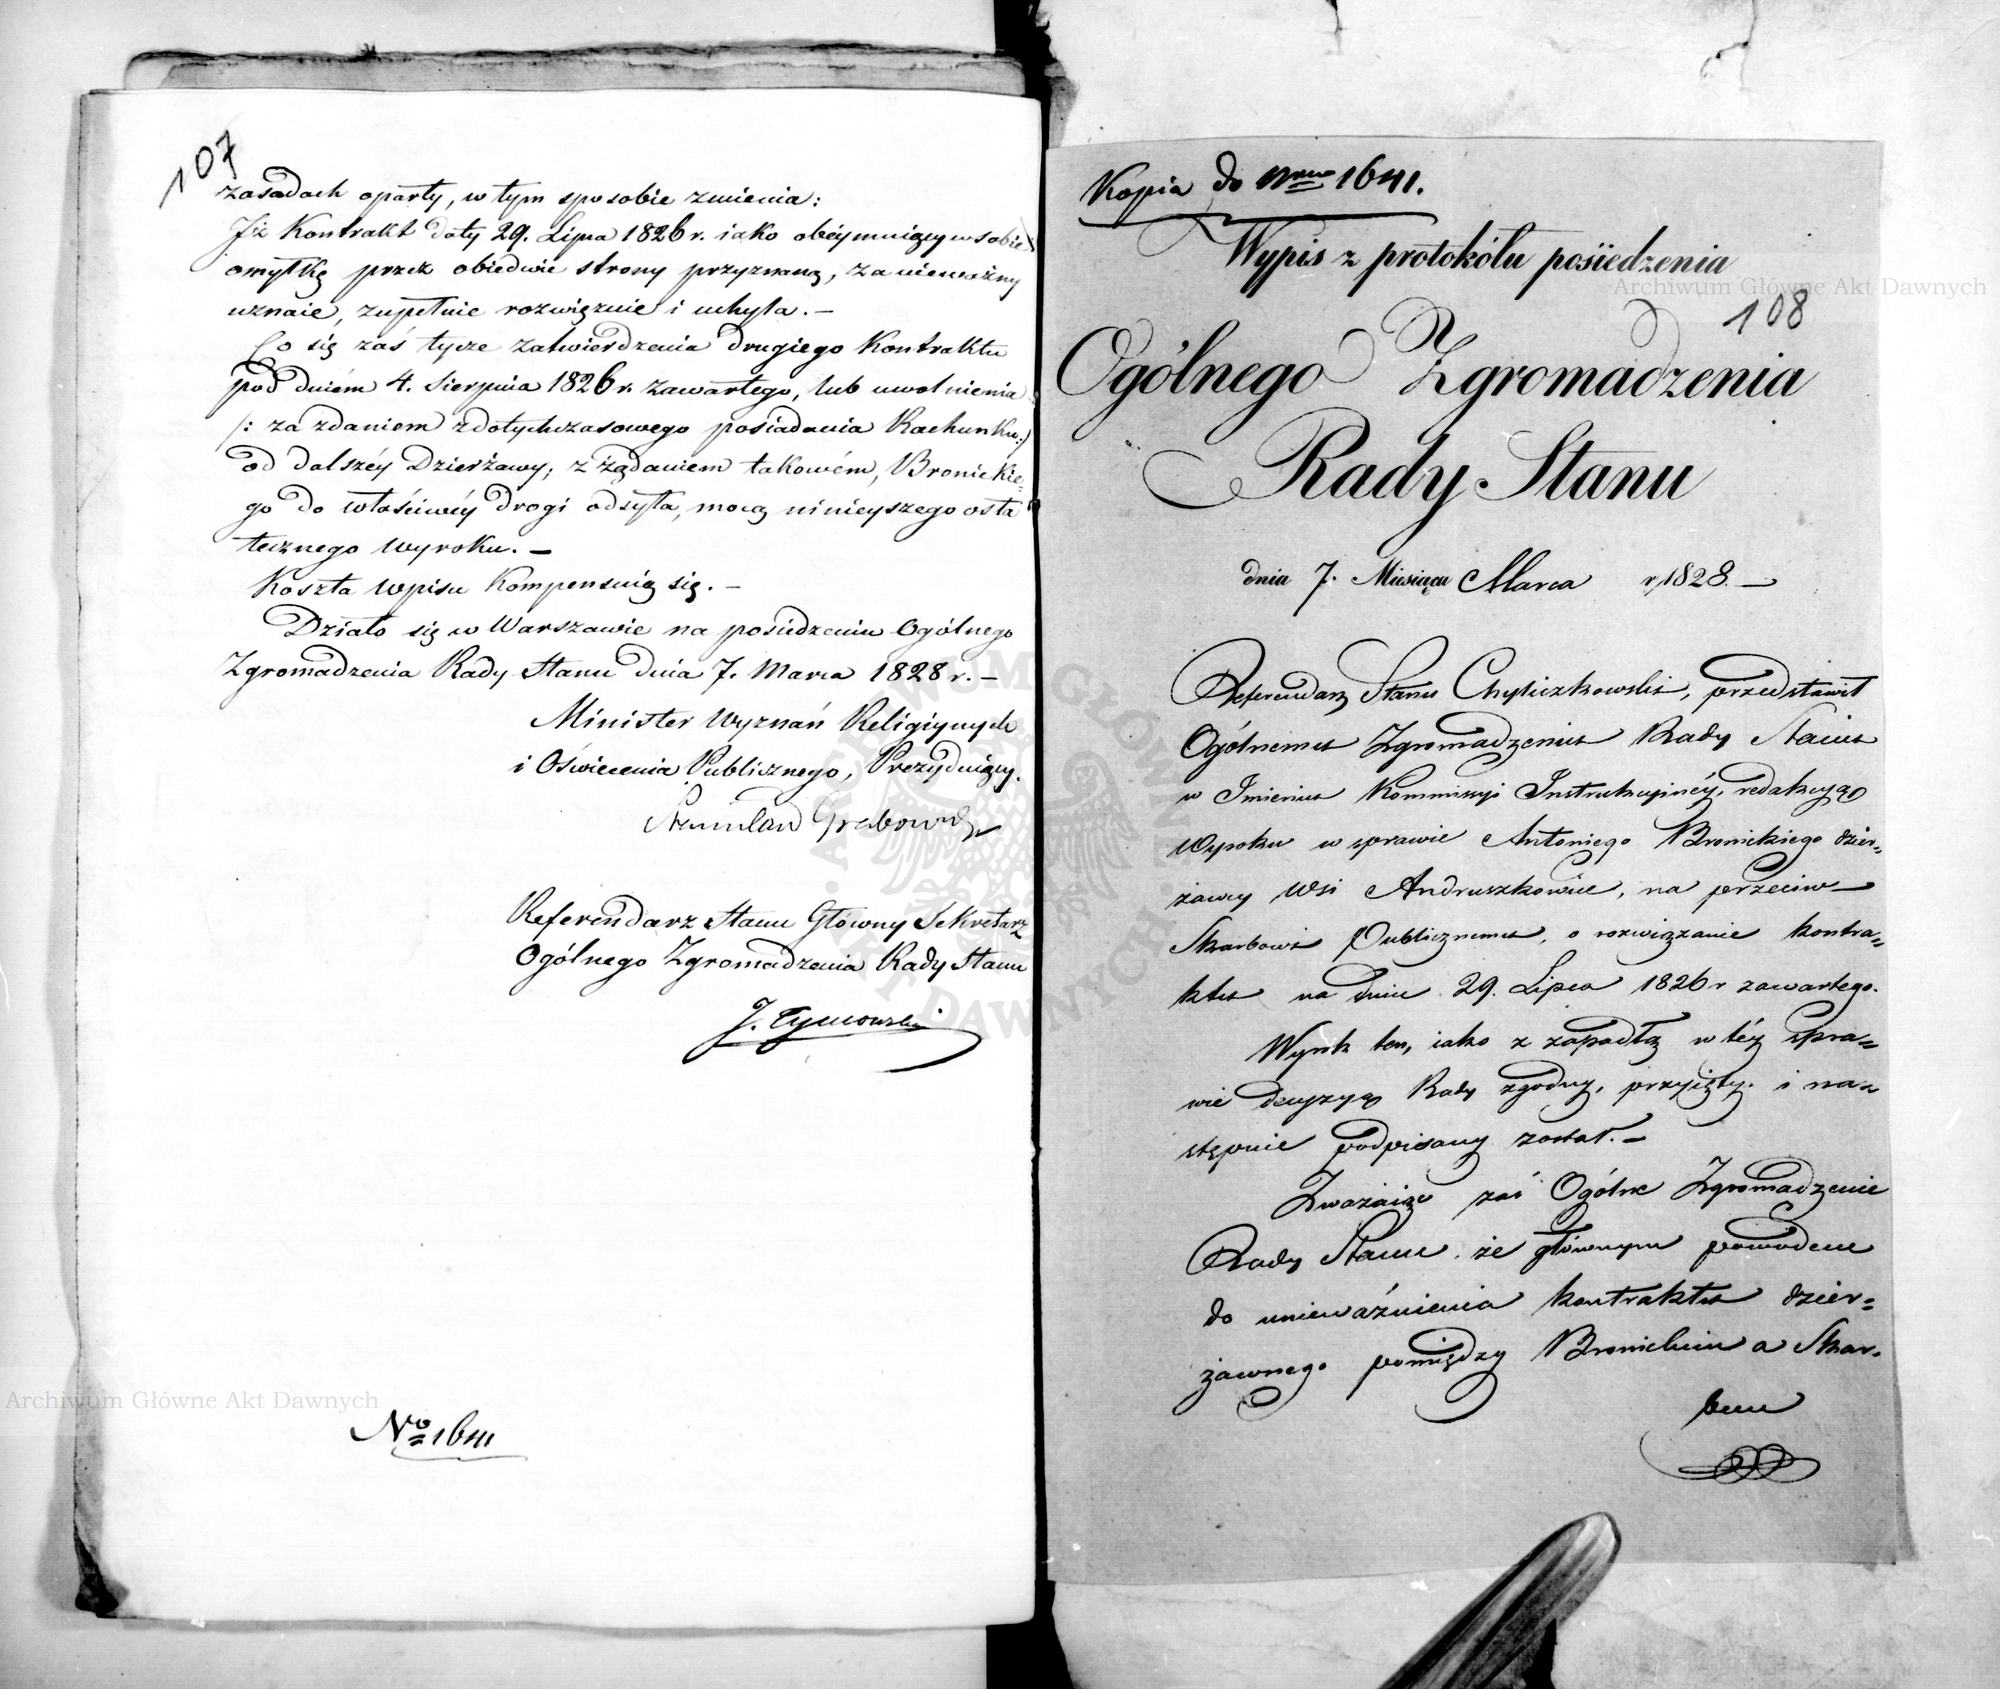 107
zasadach oparty, w tym sposobie zmienia:
Iż Kontrakt daty 29. Lipca 1826 r. iako obéymuiący w sobie
omyłkę przez obiedwie strony przyznaną, za nieważny
uznaie, zupełnie rozwięzuie i uchyla. —
Co się zaś tycze zatwierdzenia drugiego Kontraktu
pod dniem 4. Sierpnia 1826 r. zawartego, lub uwolnienia
/: za zdaniem z dotychczasowego posiadania Rachunku :/
od dalszéy Dzierżawy; z żądaniem takowém, Bronickie=
go do właściwéy drogi odsyła, mocą ninieyszego osta
tecznego Wyroku. —
Koszta wpisu Kompensuią się. —
Działo się w Warszawie na posiedzeniu Ogólnego
Zgromadzenia Rady Stanu dnia 7. Marca 1828 r. —
Minister Wyznań Religiynych
i Oświecenia Publicznego, Prezyduiący.
Stanisław Grabowski
Referendarz Stanu Główny Sekretarz
Ogólnego Zgromadzenia Rady Stanu
J. Tymowski
No 1641
Kopia do Nru 1641.
Wypis z protokółu posiedzenia
108
Ogólnego Zgromadzenia
Rady Stanu
dnia 7. Miesiąca Marca r. 1828. —
Referendarz Stanu Chyliczkowski, przedstawił
Ogólnemu Zgromadzeniu Rady Stanu
w Imieniu Kommissyi Instrukcyinéy, redakcyą
Wyroku w sprawie Antoniego Bronickiego dzier=
żawcy Wsi Andruszkowice, na przeciw
Skarbowi Publicznemu, o rozwiązanie kontra=
ktu na dniu 29. Lipca 1826 r zawartego.
Wyrok ten, iako z zapadłą w téy spra=
wie decyzyą Rady zgodny, przyięty i na=
stępnie podpisany został. —
Zważaiąc zaś Ogólne Zgromadzenie
Rady Stanu, że głównym powodem
do unieważnienia kontraktu dzier=
żawnego pomiędzy Bronickim a Skar=
bem
Archiwum Główne Akt Dawnych
Archiwum Główne Akt Dawnych
ARCHIWUM GŁÓWNE AKT DAWNYCH